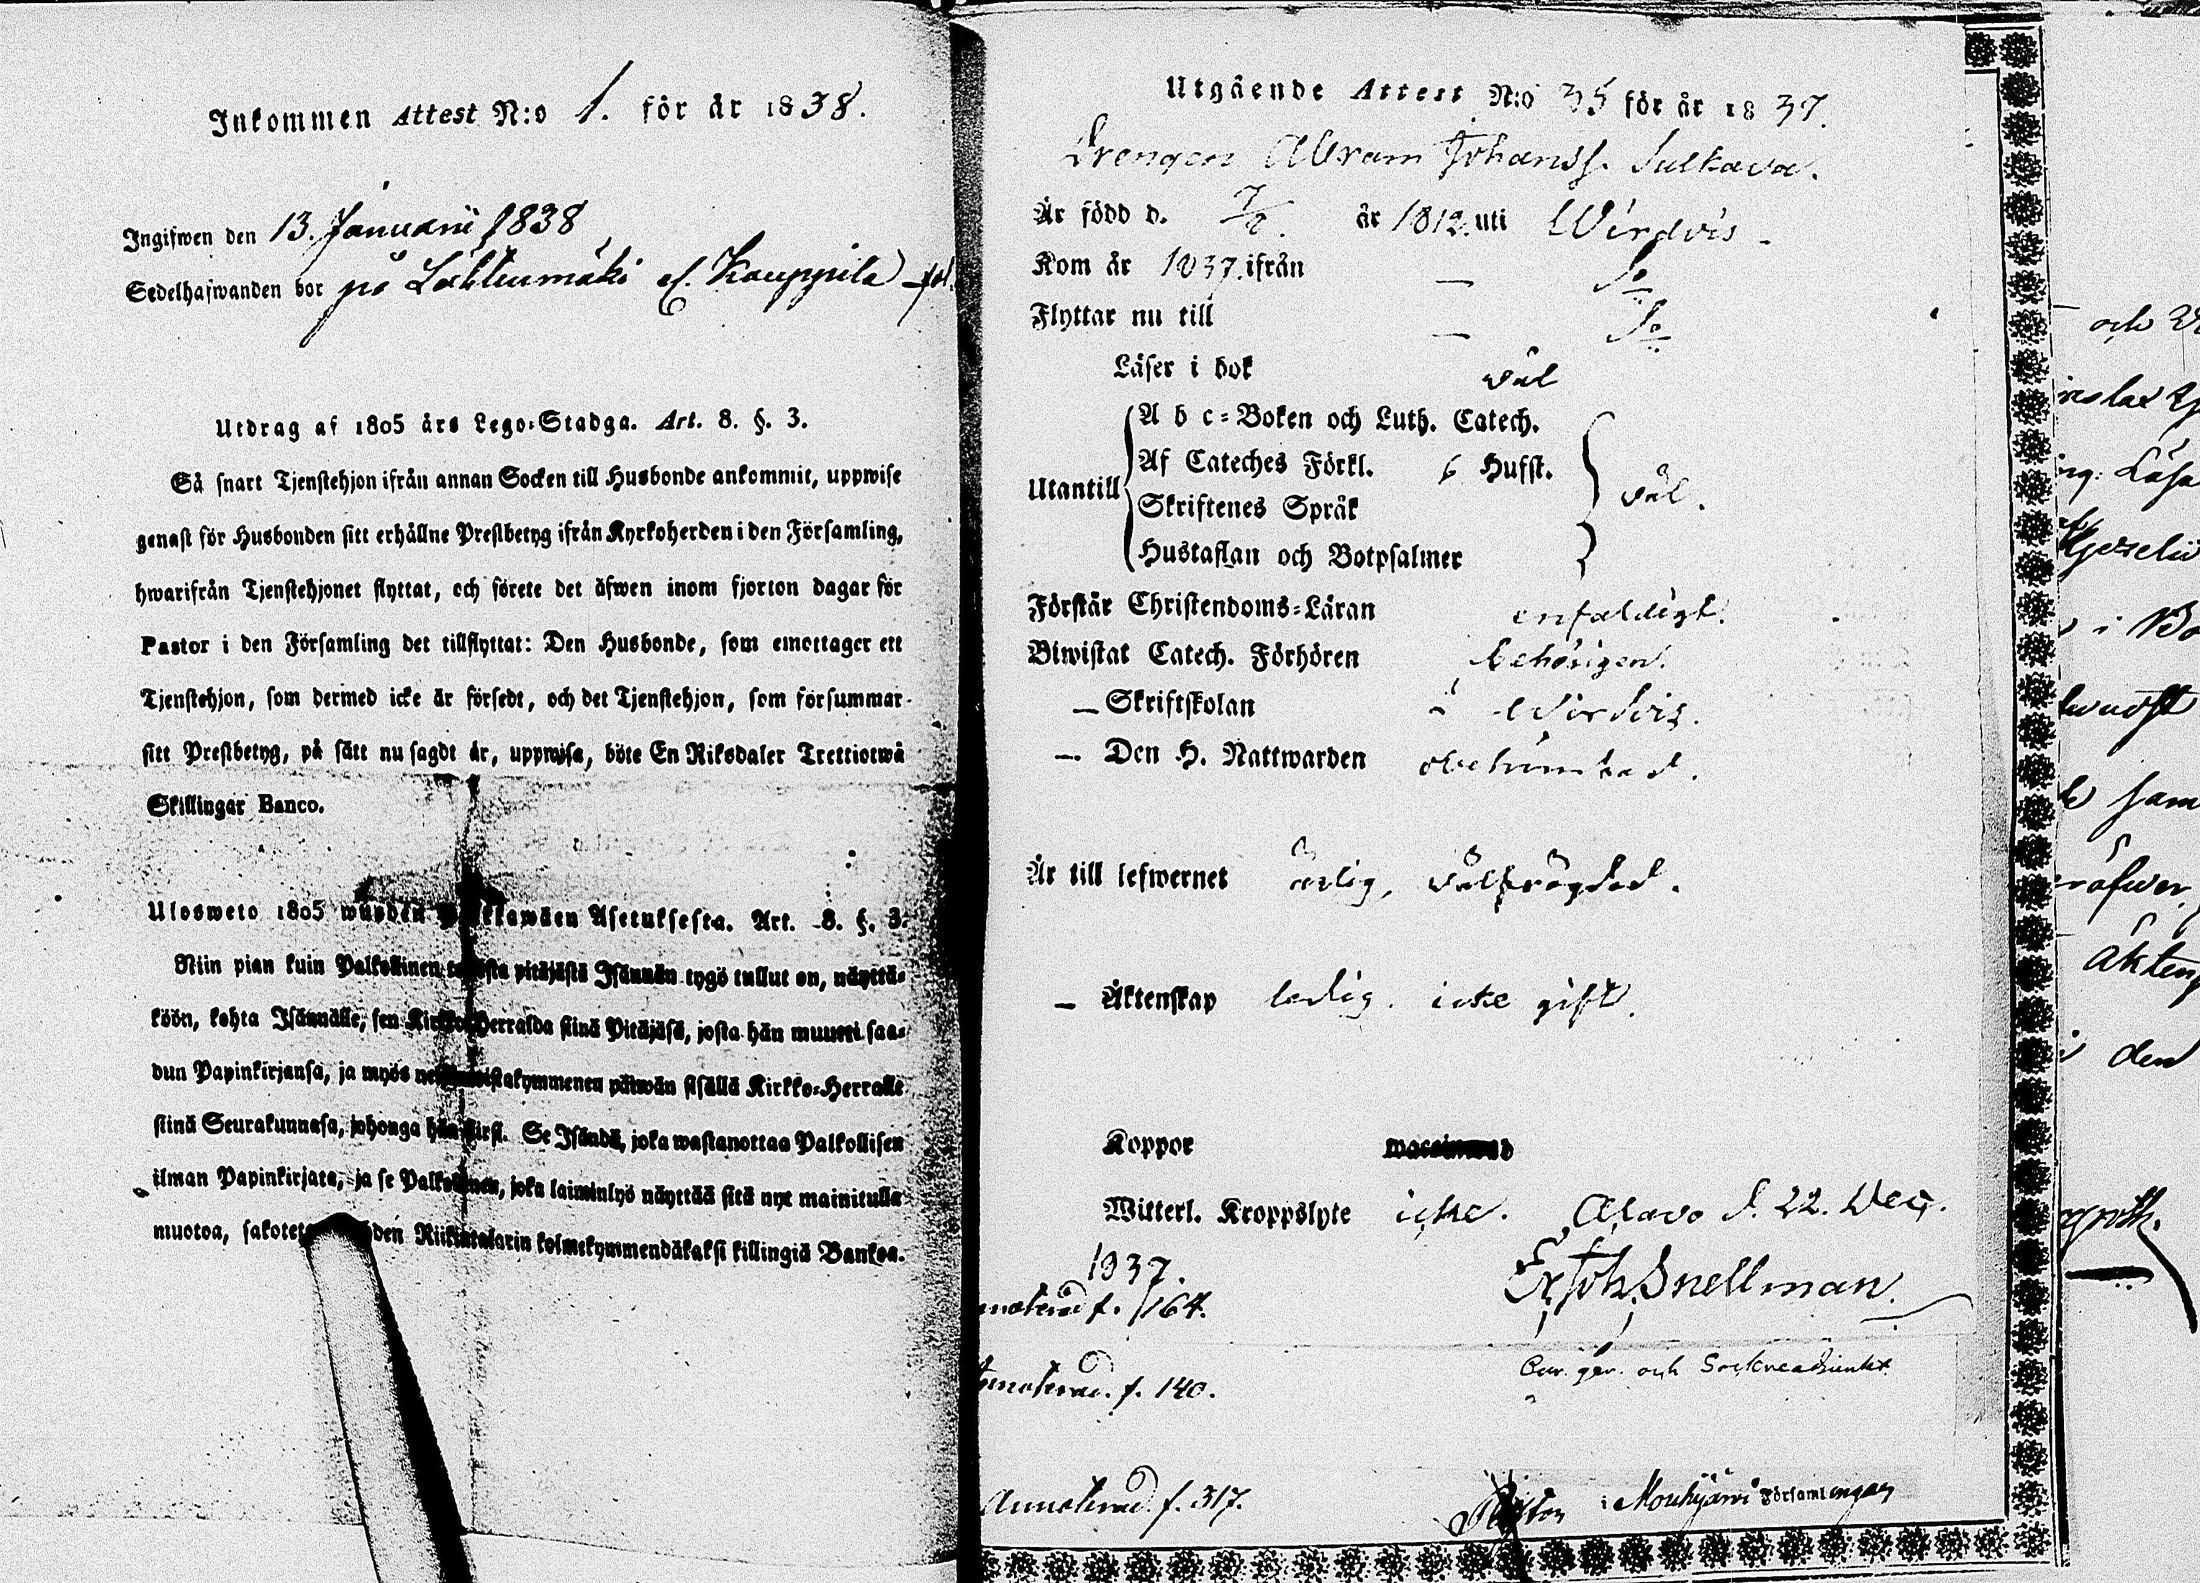 Inkommen Attest N:o 1. för år 1838.
Ingifwen den 13. Januarii 1838
Sedelhafwanden bor på Lähteenmäki el. Kauppila fol.
Utdrag af 1805 års Lego-Stadga. Art. 8. §. 3.
Så snart Tjenstehjon ifrån annan Socken till Husbonde ankommit, uppwise
genast för Husbonden sitt erhållne Prestbetyg ifrån Kyrkoherden i den Församling,
hwarifrån Tjenstehjonet flyttat, och förete det äfwen inom fjorton dagar för
Pastor i den Församling det tillflyttat: Den Husbonde, som emottager ett
Tjenstehjon, som dermed icke är försedt, och det Tjenstehjon, som försummar
sitt Prestbetyg, på sätt nu sagdt är, uppwisa, böte En Riksdaler Trettiotwå
Skillingar Banco.
Ulosweto 1805 wuoden Asetuksesta. Art. 8. §. 3.
Niin pian kuin Palkollinen toisesta pitäjästä Isännän tygö tullut on, näyttä-
köön, kohta Isännälle, sen Kirkko-Herralda siinä Pitäjäsä, josta hän muutti saa-
dun Papinkirjansa, ja myös neljäntoistakymmenen päiwän sisällä Kirkko-Herralle
siinä Seurakunnasa, johonga hän siirsi. Se Isändä, joka wastanottaa Palkollisen
ilman Papinkirjata, ja se Palkollinen, joka laiminlyö näyttää sitä nyt mainitulla
muotoa, sakotet Riikintalarin kolmekymmendäkaksi killingiä Bankoa.
Utgående Attest N:o 35 för år 1837.
Drengen Abram Johanss. Sulkava.
Är född d. 7/2. år 1812. uti Wirdois
Kom år 1837. ifrån — Do
Flyttar nu till — Do
Läser i bok väl
Utantill
A b c-Boken och Luth. Catech.
Af Cateches Förkl. 6 Hufst.
väl.
Skriftenes Språk
Hustaflan och Botpsalmer
Förstår Christendoms-Läran enfaldigt.
Biwistat Catech. Förhören behörigen.
— Skriftskolan i Wirdois.
— Den H. Nattwarden obehindrad.
Är till lefwernet ärlig, välfrägdad.
— Äktenskap ledig. icke gift.
Koppor
Witterl. Kroppslyte icke. Alavo d. 22. Dec.
1837.
Er. Joh. Snellman.
f. 164.
Cur. ger. och Sockneadjunkt
f. 140.
Annoterad f. 317.
Pastor i Mouhijärvi Församlingen
och
Läsa
i Bo
sam
den